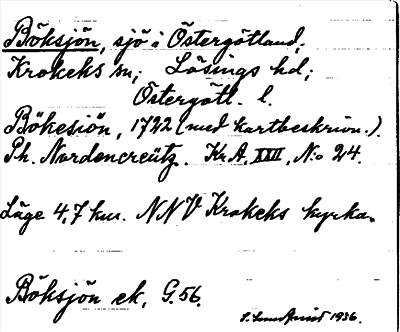 Böksjön, sjö i Östergötland;
Krokeks sn; Lösings hd;
Östergötl. l.
Bökesiön, 1722 (med kartbeskrivn.).
Ph. Nordencreütz. Kr.A. XXII, N:o 24.
Läge 4,7 km. NNV Krokeks kyrka.
Böksjön ek, G.56.
1936.